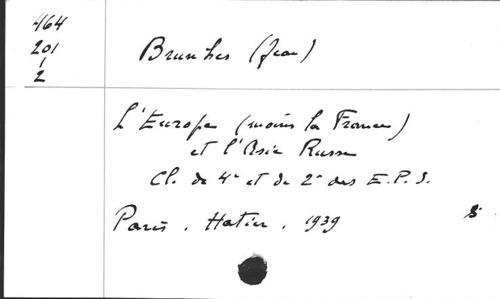 464
201
1
2
Brunhes (Jean)
L'Europe (moins la France)
et l'Asie Russe
Cl. de 4e et de 2e des E.P.S.
Paris. Hatier. 1939
8°